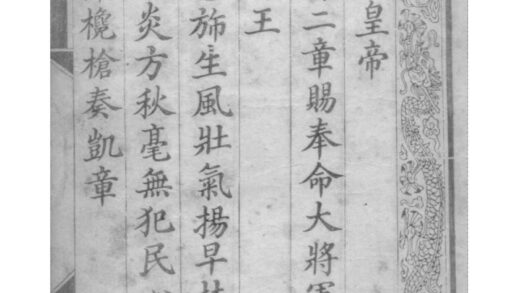 皇帝
二章賜奉命大將軍
王
旆生風壯氣揚早
炎方秋毫無犯民
欃槍奏凱章